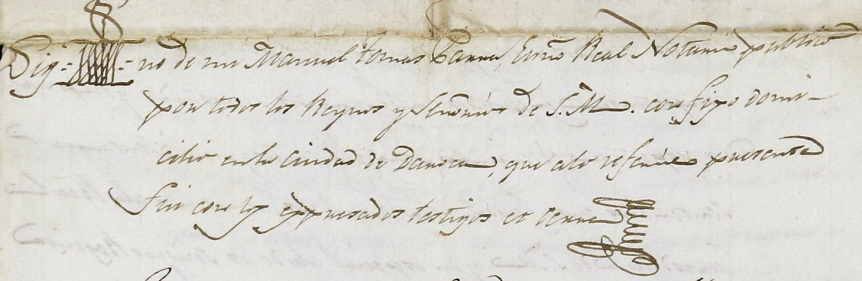 Sig-no de mi Manuel tomas Parra, Essno Real Notario publico
por todos los Reynos y Señorios de S.M. con fixo domi-
cilio en la Ciudad de Daroca, que a lo referido presente
fui con los expresados testigos et cerre